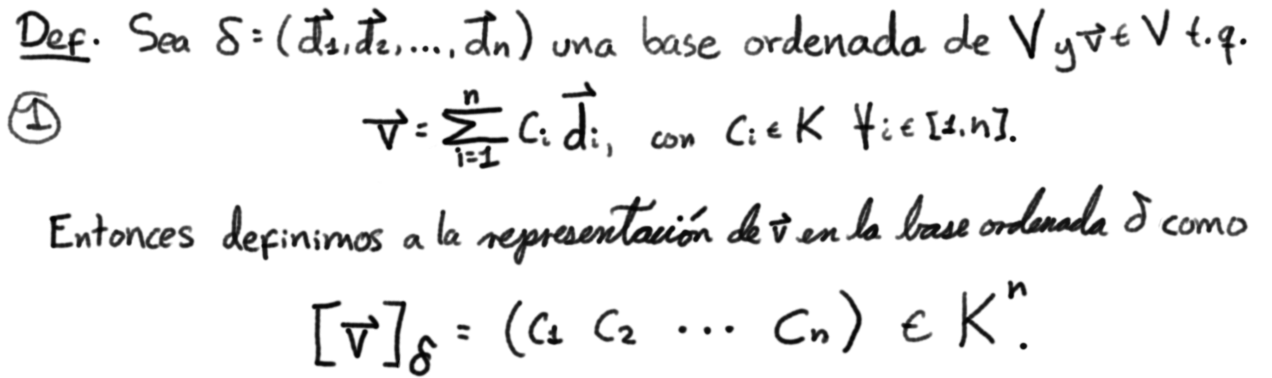 Def. Sea δ = (d⃗1, d⃗2, ..., d⃗n) una base ordenada de V y v⃗ ∈ V t.q.
① v⃗ = ∑_{i=1}^{n} Ci d⃗i, con Ci ∈ K ∀i ∈ [1,n].
Entonces definimos a la representación de v⃗ en la base ordenada δ como
[v⃗]δ = (C1 C2 ... Cn) ∈ Kⁿ.